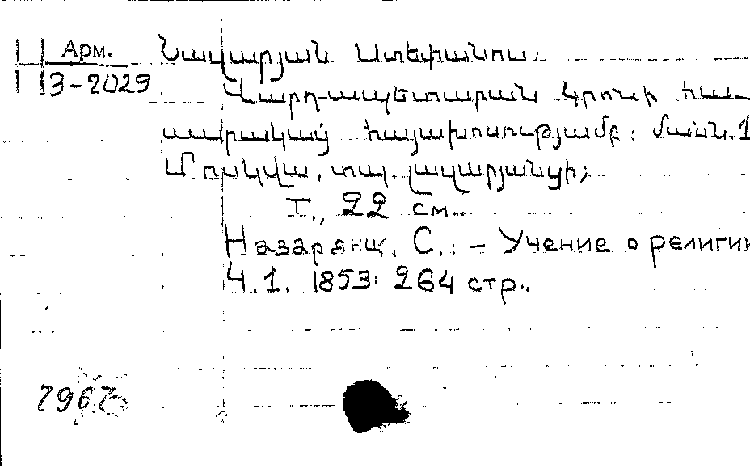 Арм.
3-2029
Նազարյան Ստեփանոս.
Վարդապետարան կրոնի հա-
սարակաց հայախօսությամբ: մասն.1
Մոսկվա, տպ. Լազարյանցի;
I., 22 см.
Назарянц, С.: - Учение о религии
Ч.1. 1853. 264 стр.